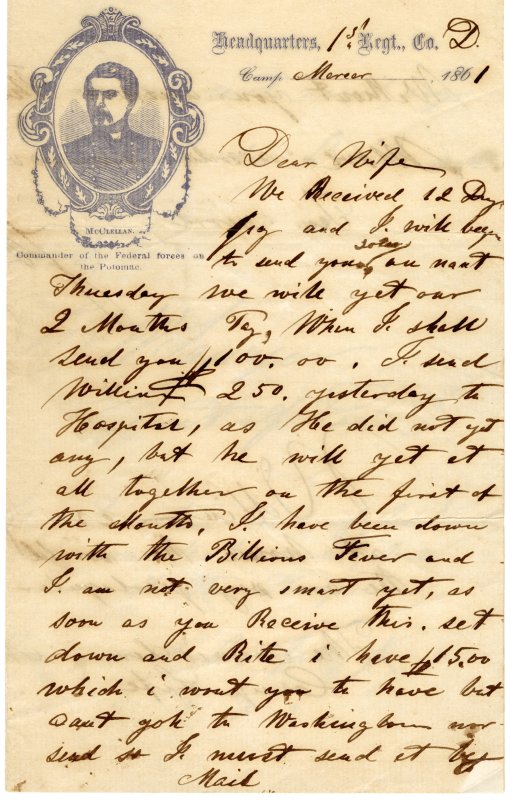 Headquarters, 1st Regt., Co. D.
Camp Mercer 1861
McCLELLAN.
Commander of the Federal forces on
the Potomac.
Dear Wife
We Received 12 Days
Pay and I will
to send you on next
Thuesday we will yet our
2 Months Pay, When I shall
send you $100.00. I send
Willin $250. yesterday to
Hospital, as He did not yet
any, but he will yet it
all together on the first of
the Months. I have been down
with the Billious Fever and
I am not very smart yet, as
soon as you Receive this. set
down and Rite i have $15.00
which i want you to have but
cant goh to Washington nor
send so I must send it by
Mail